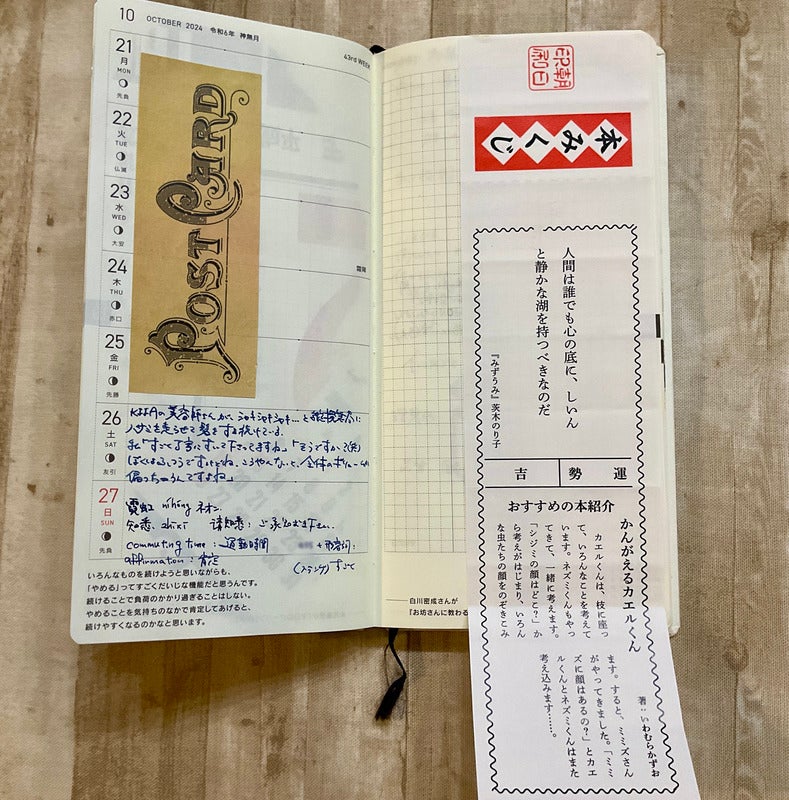 10 OCTOBER 2024 令和6年 神無月
43rd WEEK
21
月
MON
先負
22
火
TUE
仏滅
23
水
WED
大安
24
木
THU
赤口
霜降
25
金
FRI
先勝
26
土
SAT
友引
27
日
SUN
先負
POST CARD
の美容師さんが、シャキシャキシャキ…と
ハサミを走らせて髪を
私「すごく丁寧にすいて下さってますね」「そうですか?(笑)
全体のボリュームが
偏っちゃうんですよね」
霓虹 níhóng ネオン
知悉 zhīxī 请知悉:ご承知おき下さい
commuting time:通勤時間
affirmation:肯定
すごく
いろんなものを続けようと思いながらも、
「やめる」ってすごくだいじな機能だと思うんです。
続けることで負荷のかかり過ぎることはしない。
やめることを気持ちのなかで肯定してあげると、
続けやすくなるのかなと思います。
白川密成さんが
『お坊さんに教わる
本みくじ
人間は誰でも心の底に、しいん
と静かな湖を持つべきなのだ
『みずうみ』茨木のり子
運勢 吉
おすすめの本紹介
かんがえるカエルくん
著:いわむらかずお
カエルくんは、枝に座っ
て、いろんなことを考えて
います。ネズミくんもやっ
てきて、一緒に考えます。
「シジミの顔はどこ?」か
ら考えがはじまり、いろん
な虫たちの顔をのぞきこみ
ます。すると、ミミズさん
がやってきました。「ミミ
ズに顔はあるの?」とカエ
ルくんとネズミくんはまた
考え込みます……。